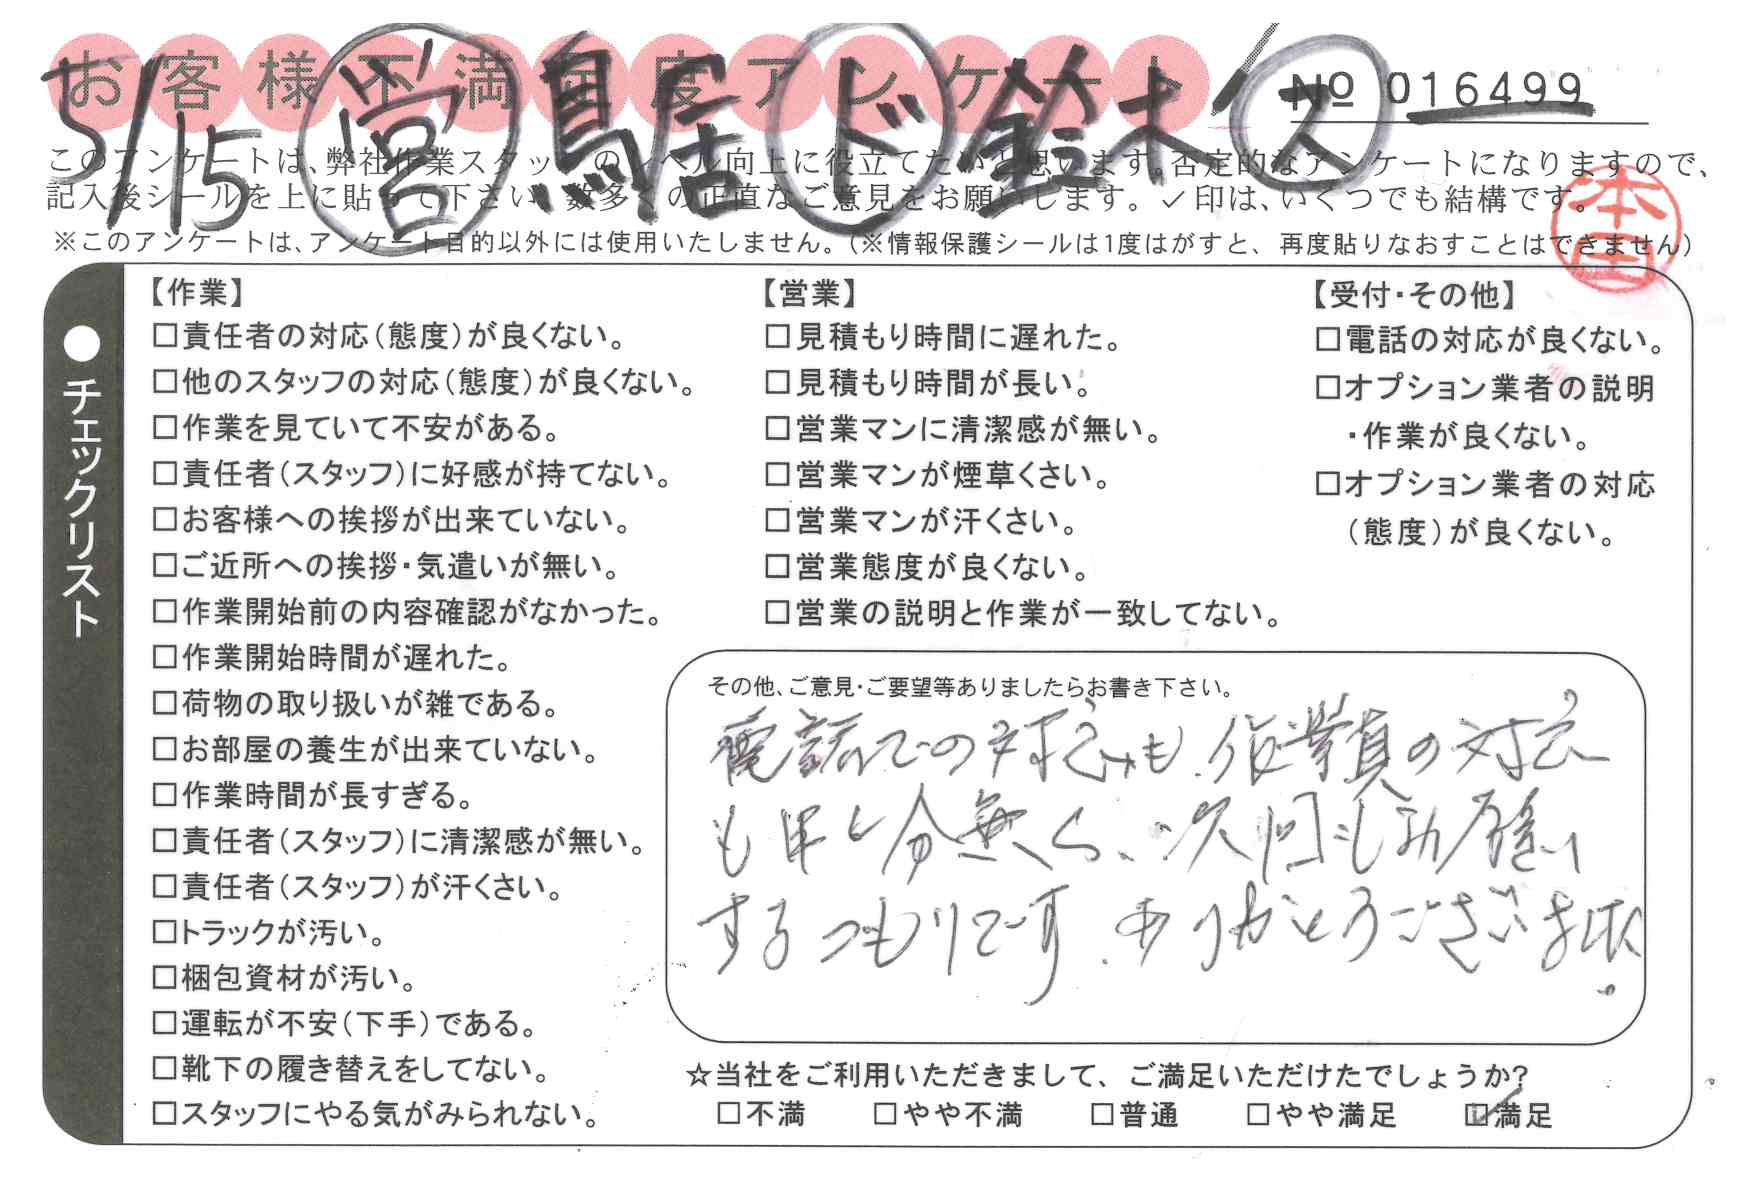 お客様不満足度アンケート
5/15 営 鳥居 ド 鈴木 ス
№ 016499
このアンケートは、弊社作業スタッフのレベル向上に役立てたいと思います。否定的なアンケートになりますので、
記入後シールを上に貼って下さい。数多くの正直なご意見をお願いします。✓印は、いくつでも結構です。
※このアンケートは、アンケート目的以外には使用いたしません。(※情報保護シールは1度はがすと、再度貼りなおすことはできません)
本田
●チェックリスト
【作業】
□責任者の対応(態度)が良くない。
□他のスタッフの対応(態度)が良くない。
□作業を見ていて不安がある。
□責任者(スタッフ)に好感が持てない。
□お客様への挨拶が出来ていない。
□ご近所への挨拶・気遣いが無い。
□作業開始前の内容確認がなかった。
□作業開始時間が遅れた。
□荷物の取り扱いが雑である。
□お部屋の養生が出来ていない。
□作業時間が長すぎる。
□責任者(スタッフ)に清潔感が無い。
□責任者(スタッフ)が汗くさい。
□トラックが汚い。
□梱包資材が汚い。
□運転が不安(下手)である。
□靴下の履き替えをしてない。
□スタッフにやる気がみられない。
【営業】
□見積もり時間に遅れた。
□見積もり時間が長い。
□営業マンに清潔感が無い。
□営業マンが煙草くさい。
□営業マンが汗くさい。
□営業態度が良くない。
□営業の説明と作業が一致してない。
【受付・その他】
□電話の対応が良くない。
□オプション業者の説明
・作業が良くない。
□オプション業者の対応
(態度)が良くない。
その他、ご意見・ご要望等ありましたらお書き下さい。
電話での対応も、作業員の対応
も申し分無く、次回もお願い
するつもりです。ありがとうございました。
☆当社をご利用いただきまして、ご満足いただけたでしょうか?
□不満 □やや不満 □普通 □やや満足 ☑満足